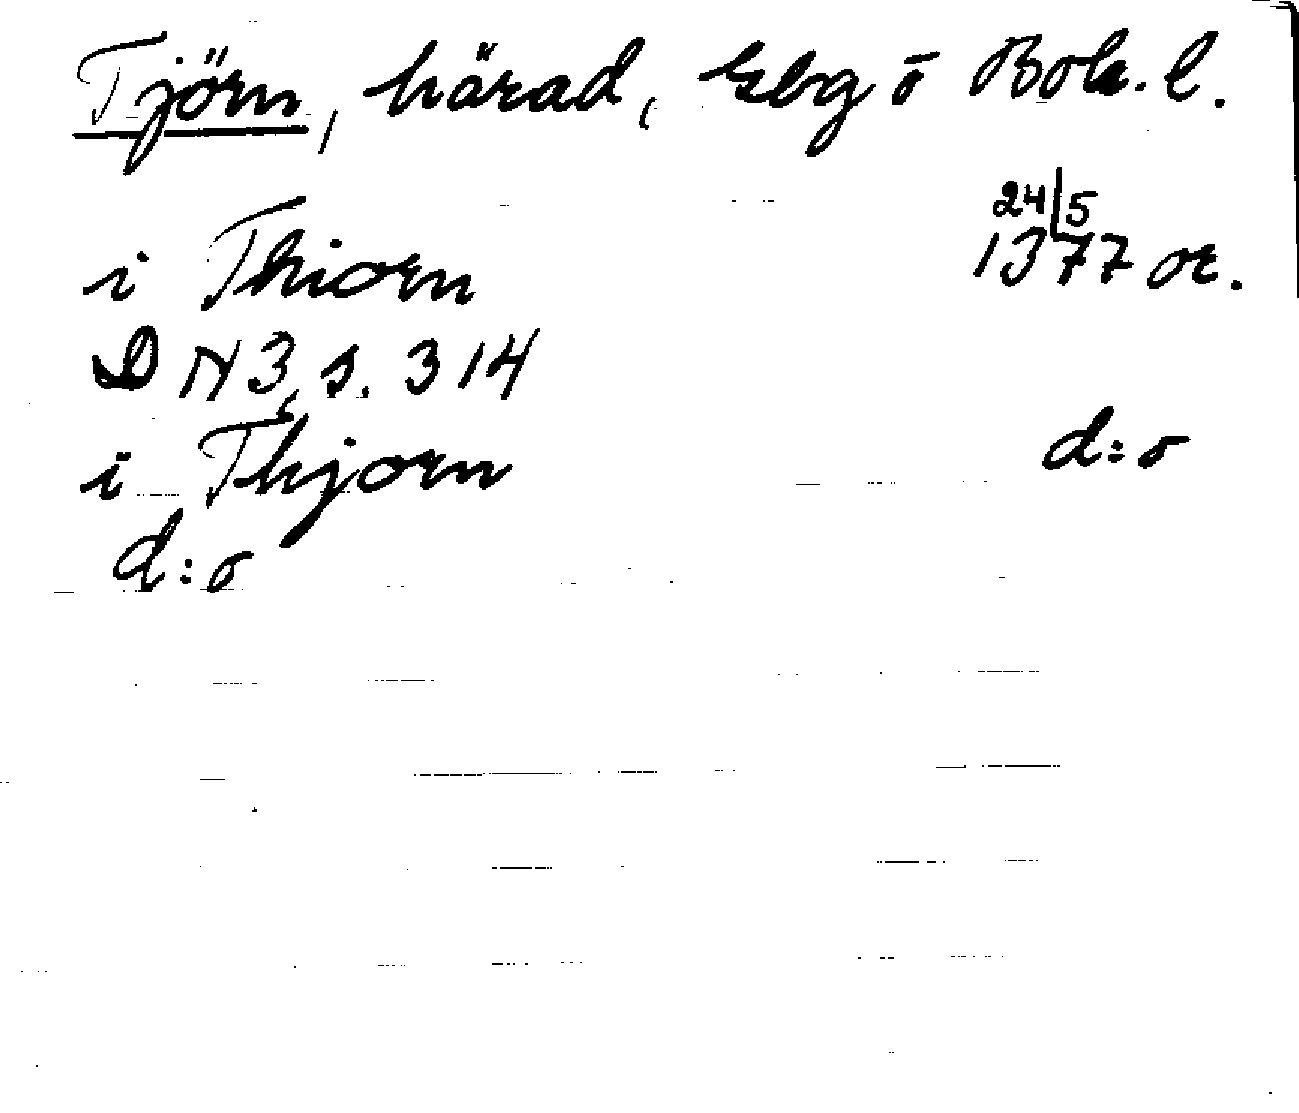 Tjörn, härad, Gbg o Boh. l.
i Thiorn 24/5 1377 or.
DN 3, s. 314
i Thjorn d:o
d:o